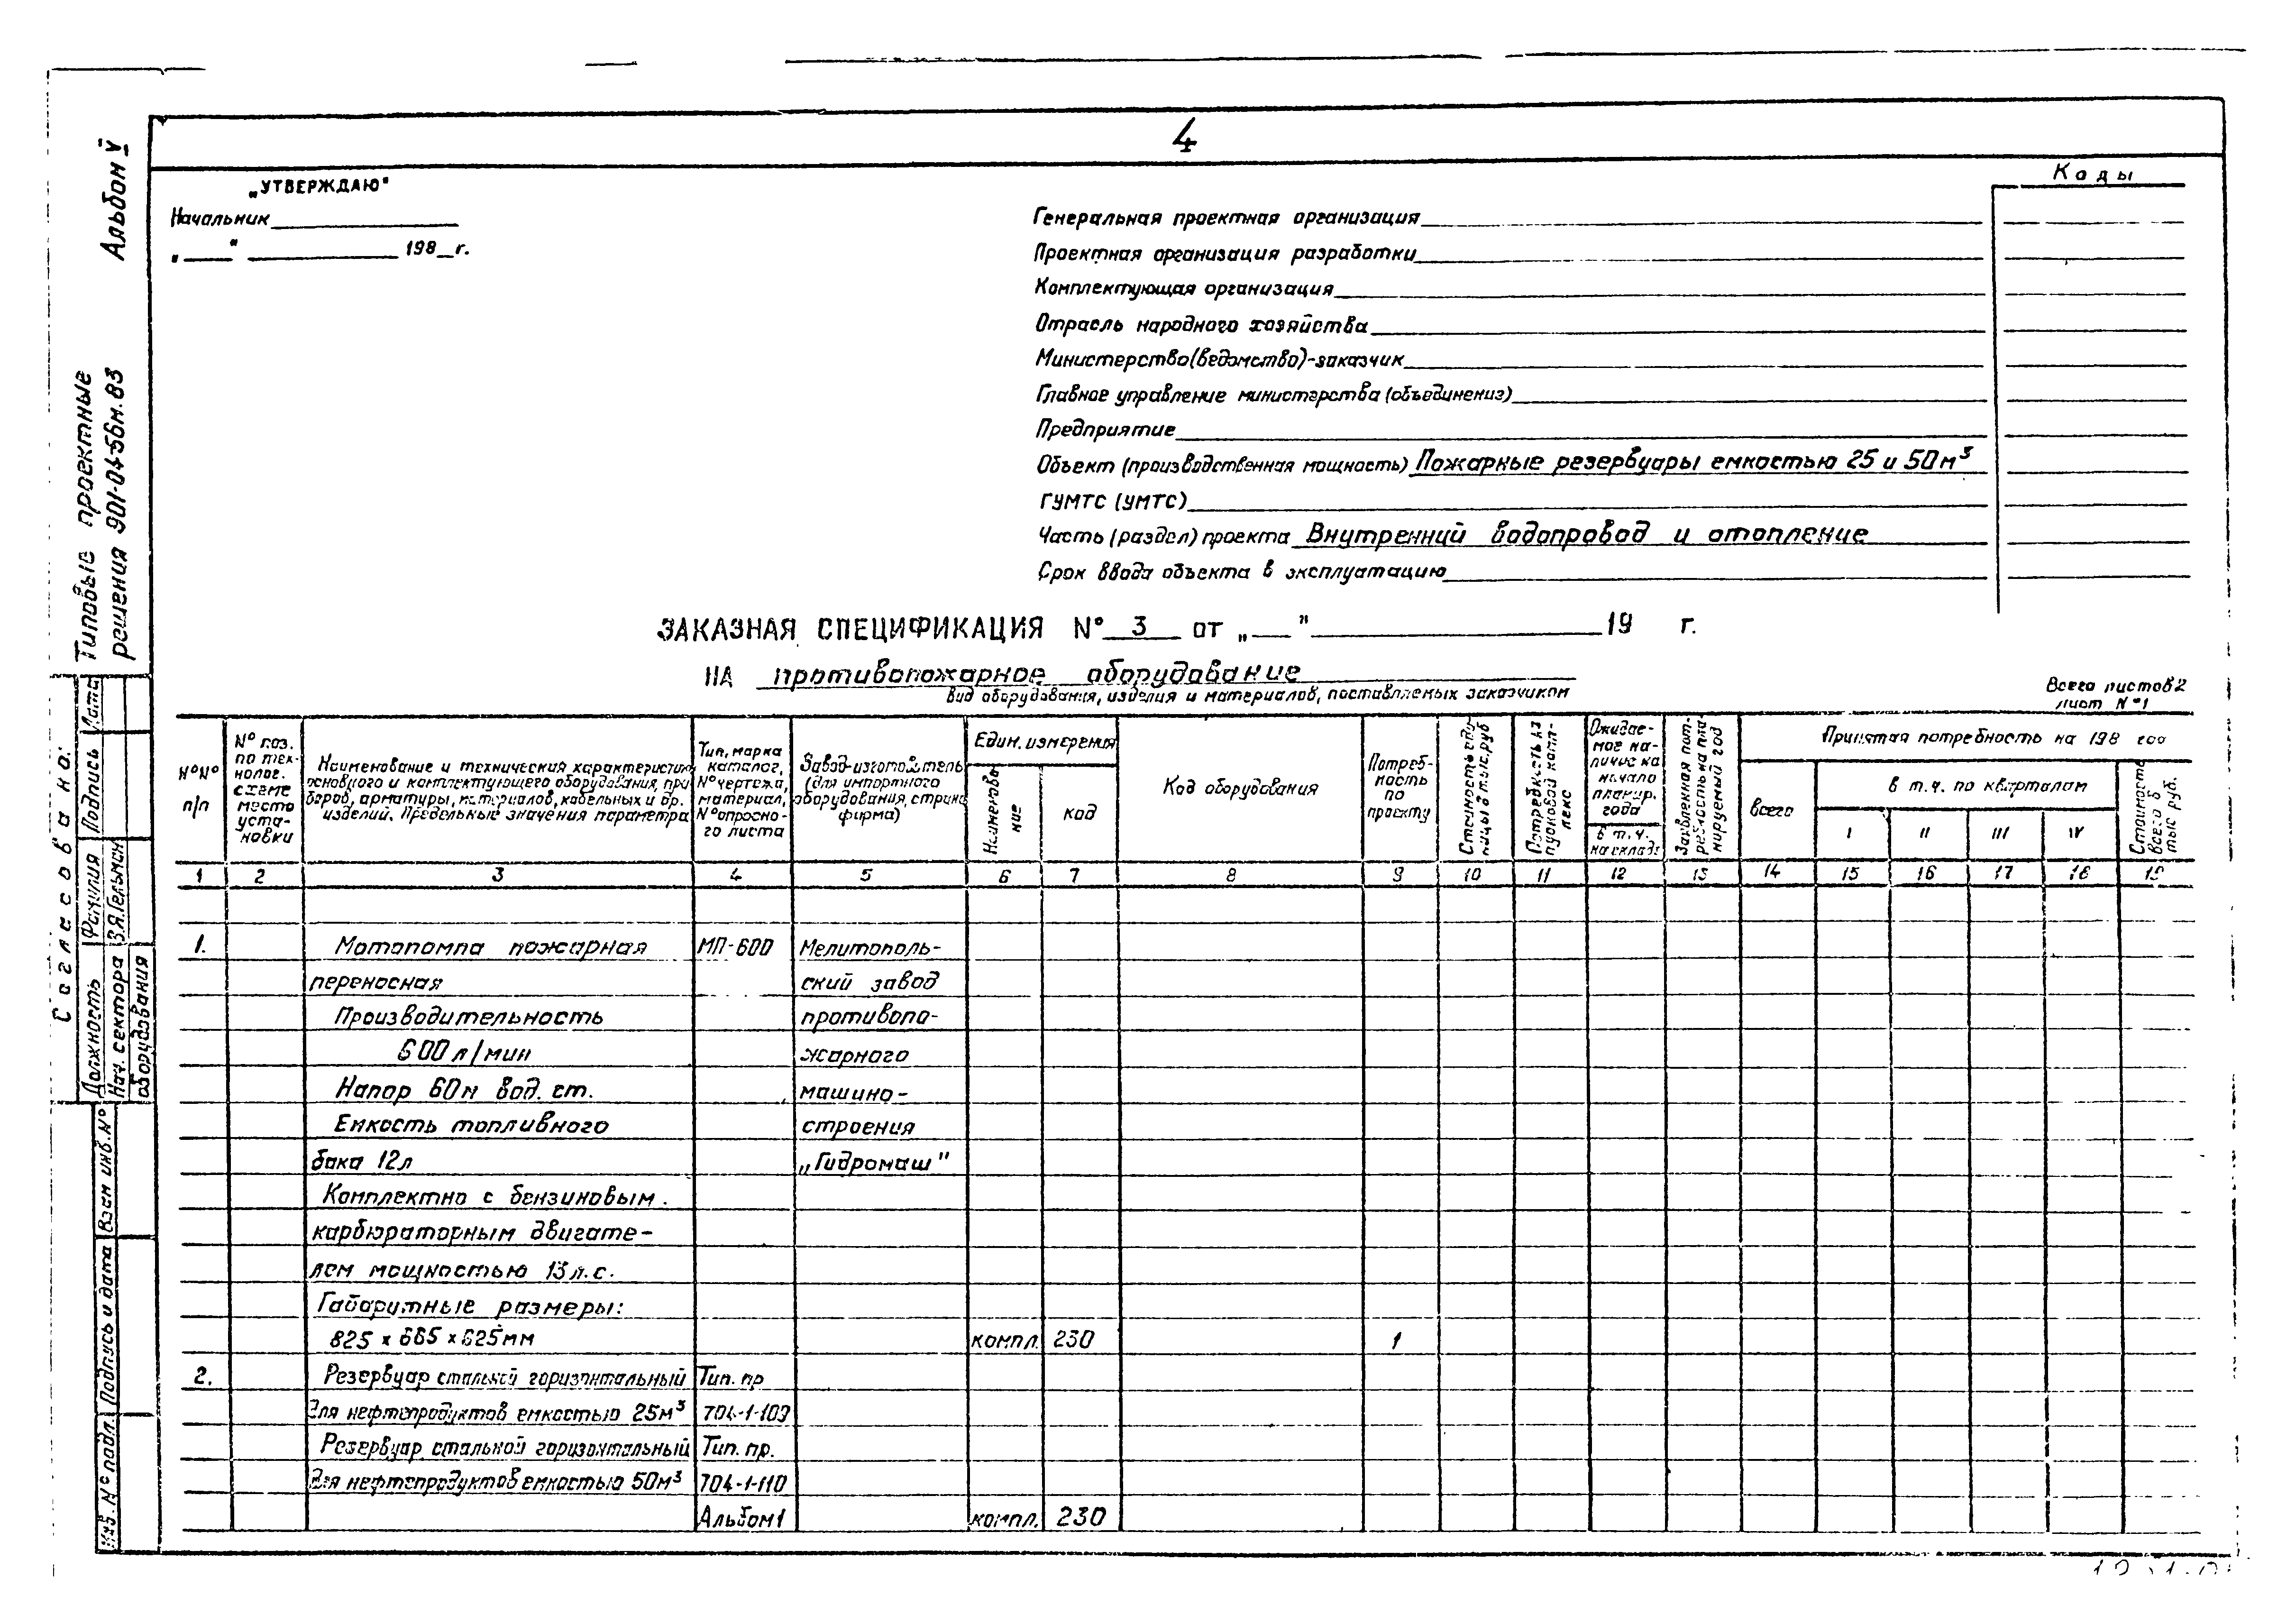 4
Альбом V
Типовые проектные
решения 901-04-56м.83
„УТВЕРЖДАЮ"
Начальник
„ " 198_г.
Коды
Генеральная проектная организация
Проектная организация разработки
Комплектующая организация
Отрасль народного хозяйства
Министерство(ведомство)-заказчик
Главное управление министерства (объединения)
Предприятие
Объект (производственная мощность) Пожарные резервуары емкостью 25 и 50м³
ГУМТС (УМТС)
Часть (раздел) проекта Внутренний водопровод и отопление
Срок ввода объекта в эксплуатацию
ЗАКАЗНАЯ СПЕЦИФИКАЦИЯ N° 3 от „ " 19 г.
НА противопожарное оборудование
вид оборудования, изделия и материалов, поставляемых заказчиком
Всего листов 2
лист N°1
N°N° п/п
N° поз. по технолог. схеме место установки
Наименование и техническия характеристика
основного и комплектующего оборудования, при
боров, арматуры, материалов, кабельных и др.
изделий. Предельные значения параметра
Тип, марка
каталог,
N° чертежа,
материал,
N° опросно-
го листа
Завод-изготовитель
(для импортного
оборудования, страна
фирма)
Един. измерения
Наименование
код
Код оборудования
Потреб-
ность
по
проекту
Стоимость единицы в тыс. руб
Потребность на пусковой комплекс
Ожидае-
мое на-
личие на
начало
планир.
года
в т.ч.
на складе
Заявленная потребность на планируемый год
Принятая потребность на 198 год
всего
в т.ч. по кварталам
I II III IV
Стоимость всего в тыс руб.
1 2 3 4 5 6 7 8 9 10 11 12 13 14 15 16 17 18 19
1. Мотопомпа пожарная МП-600 Мелитополь-
переносная ский завод
Производительность противопо-
600 л/мин жарного
Напор 60м вод. ст. машино-
Емкость топливного строения
бака 12л „Гидромаш"
Комплектно с бензиновым
карбюраторным двигате-
лем мощностью 13 л.с.
Габаритные размеры:
825 х 665 х 625мм компл. 230 1
2. Резервуар стальной горизонтальный Тип. пр
для нефтепродуктов емкостью 25м³ 704-1-109
Резервуар стальной горизонтальный Тип. пр.
для нефтепродуктов емкостью 50м³ 704-1-110
Альбом 1 компл. 230
Согласовано:
Должность Фамилия Подпись Дата
Нач. сектора
оборудования
Взам инв. N°
Подпись и дата
Инв. N° подл.